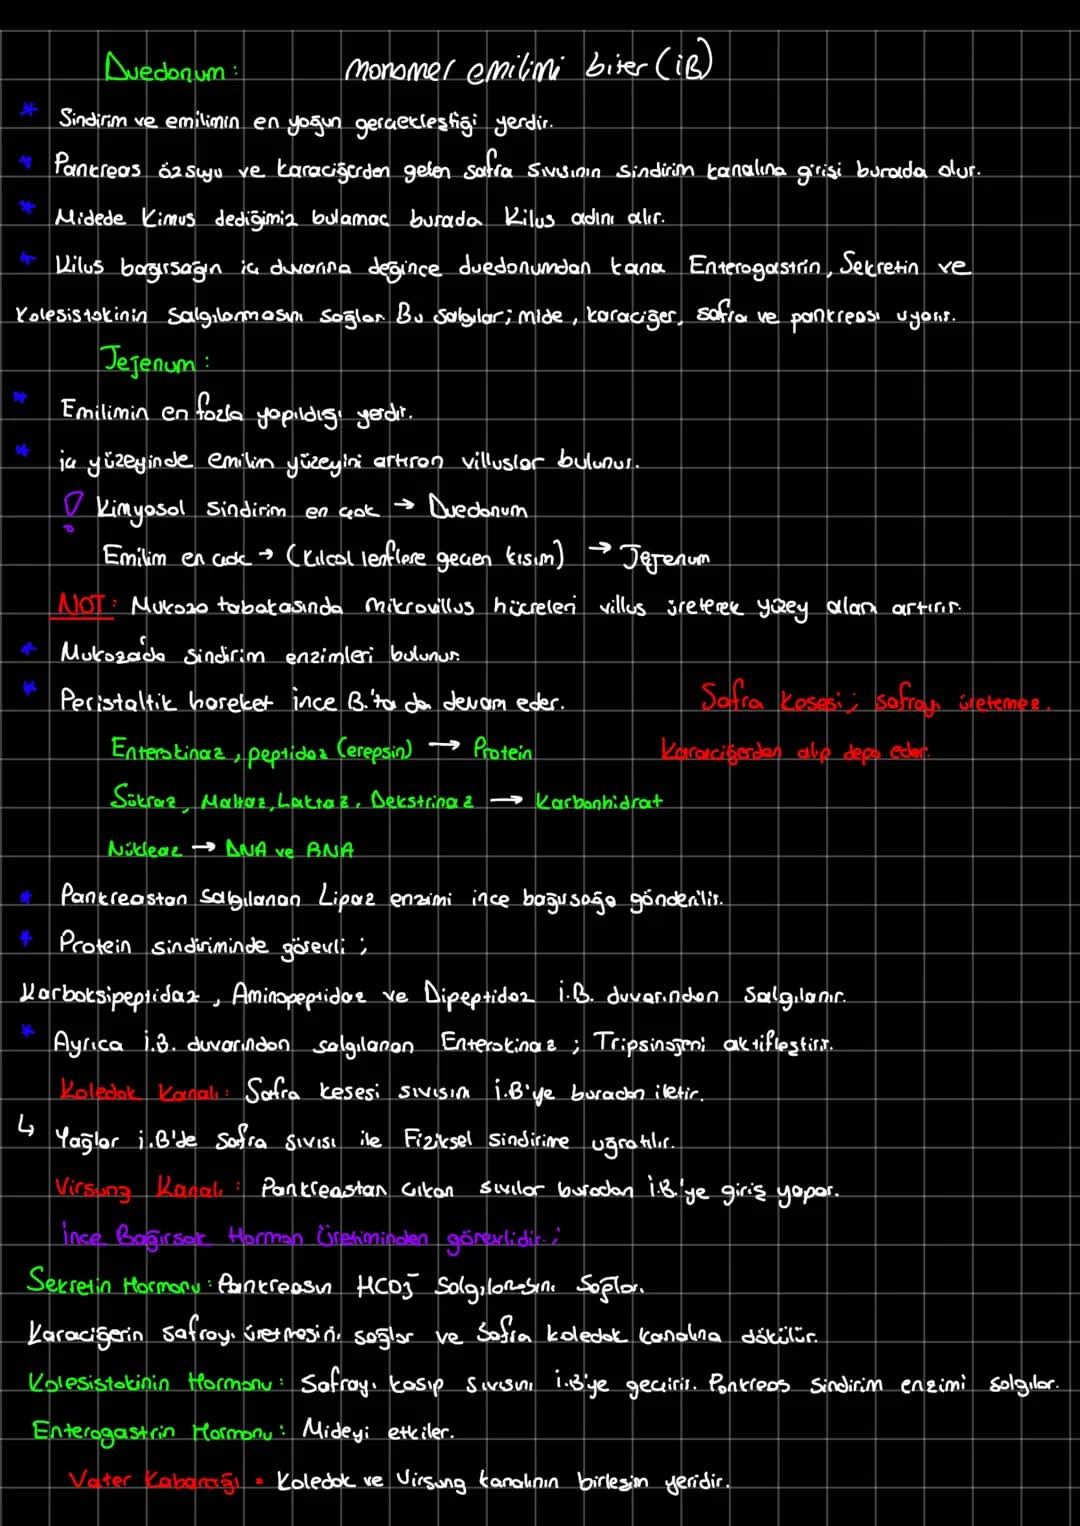 Duedonum: monomer emilimi biter (iB)
* Sindirim ve emilimin en yoğun gerçekleştiği yerdir.
* Pankreas özsuyu ve karaciğerden gelen safra sıvısının sindirim kanalına girişi burada olur.
* Midede Kimus dediğimiz bulamaç burada Kilus adını alır.
* Kilus bağırsağın iç duvarına değince duedonumdan kana Enterogastrin, Sekretin ve
Kolesistokinin salgılanmasını sağlar. Bu salgılar; mide, karaciğer, safra ve pankreası uyarır.
Jejenum:
* Emilimin en fazla yapıldığı yerdir.
* iç yüzeyinde emilim yüzeyini artıran villuslar bulunur.
! Kimyasal sindirim en çok → Duedonum
Emilim en çok → (Kılcal lenflere geçen kısım) → Jejenum
NOT: Mukoza tabakasında mikrovillus hücreleri villus üreterek yüzey alanı artırır.
* Mukozada sindirim enzimleri bulunur.
* Peristaltik hareket ince B.'ta da devam eder.
Safra kesesi; safrayı üretemez.
Karaciğerden alıp depo eder.
Enterokinaz, peptidaz (erepsin) → Protein
Sükraz, Maltaz, Laktaz, Dekstrinaz → Karbonhidrat
Nükleaz → DNA ve RNA
* Pankreastan salgılanan Lipaz enzimi ince bağırsağa gönderilir.
* Protein sindiriminde görevli;
Karboksipeptidaz, Aminopeptidaz ve Dipeptidaz i.B. duvarından salgılanır.
* Ayrıca i.B. duvarından salgılanan Enterokinaz; Tripsinojeni aktifleştirir.
Koledok Kanalı: Safra kesesi sıvısını i.B'ye buradan iletir.
↳ Yağlar i.B'de safra sıvısı ile Fiziksel sindirime uğratılır.
Virsung Kanalı: Pankreastan çıkan sıvılar buradan i.B'ye giriş yapar.
İnce Bağırsak Hormon Üretiminden görevlidir.;
Sekretin Hormonu: Pankreasın HCO3⁻ Salgılanmasını Sağlar.
Karaciğerin safrayı üretmesini sağlar ve Safra koledok kanalına dökülür.
Kolesistokinin Hormonu: Safrayı kasıp sıvısını i.B'ye geçirir. Pankreas sindirim enzimi salgılar.
Enterogastrin Hormonu: Mideyi etkiler.
Vater Kabarcığı = Koledok ve Virsung kanalının birleşim yeridir.